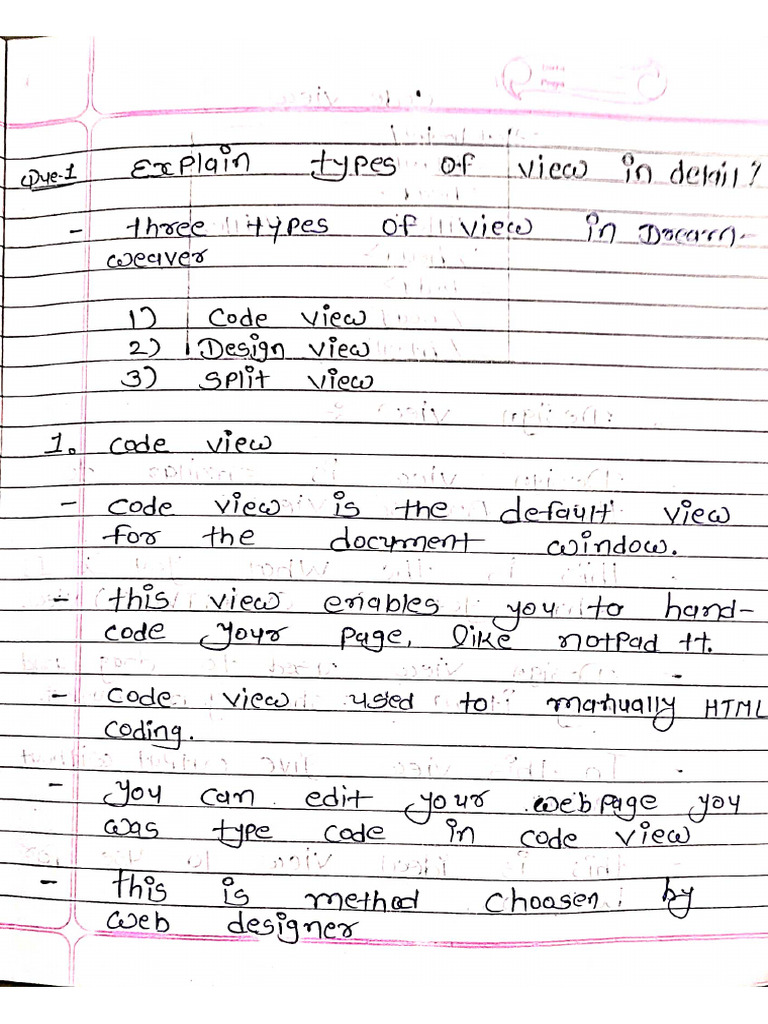 Que-1 Explain types of view in detail?
- three types of view in Dream-
weaver
1) Code view
2) Design view
3) Split view
1. code view
- code view is the default view
for the document window.
- this view enables you to hand-
code your page, like notpad tt.
- code view used to manually HTML
coding.
- you can edit your webpage you
was type code in code view
- this is method choosen by
web designer